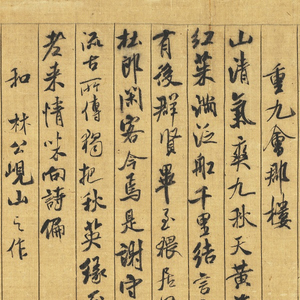 重九會郡樓
山清氣爽九秋天黃
紅茱滿泛船千里結言
有後群賢畢至猥居
杜郎閑客今焉是謝守
流古所傳獨把秋英緣
老來情味向詩偏
和林公峴山之作